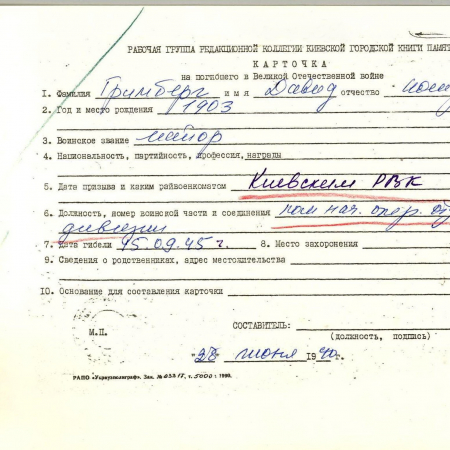 РАБОЧАЯ ГРУППА РЕДАКЦИОННОЙ КОЛЛЕГИИ КИЕВСКОЙ ГОРОДСКОЙ КНИГИ ПАМЯТ
КАРТОЧКА
на погибшего в Великой Отечественной войне
1. Фамилия Гримберг имя Давид отчество
2. Год и место рождения 1903
3. Воинское звание майор
4. Национальность, партийность, профессия, награды
5. Дата призыва и каким райвоенкоматом Киевским РВК
6. Должность, номер воинской части и соединения пом нач. опер. от
дивизии
7. Дата гибели 15.09.45 г. 8. Место захоронения
9. Сведения о родственниках, адрес местожительства
10. Основание для составления карточки
М.П. СОСТАВИТЕЛЬ:
(должность, подпись)
"28" июня 1990 г.
РАПО «Укрвузполиграф». Зак. № 0337, т. 5000 : 1990.